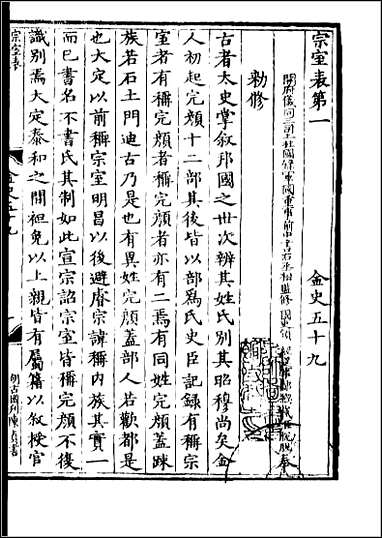 宗室表第一　金史五十九
開府儀同三司上柱國錄軍國重事前中書右丞相監修國史領經筵事都總裁臣脫脫奉
勅修
古者太史掌敘邦國之世次辨其姓氏別其昭穆尚矣金
人初起完顏十二部其後皆以部為氏史臣記錄有稱宗
室者有稱完顏者稱完顏者亦有二焉有同姓完顏蓋踈
族若石土門迪古乃是也有異姓完顏蓋部人若歡都是
也大定以前稱宗室明昌以後避睿宗諱稱內族其實一
而已書名不書氏其制如此宣宗詔宗室皆稱完顏不復
識別焉大定泰和之間袒免以上親皆有屬籍以敘授官
宗室表
金史五十九